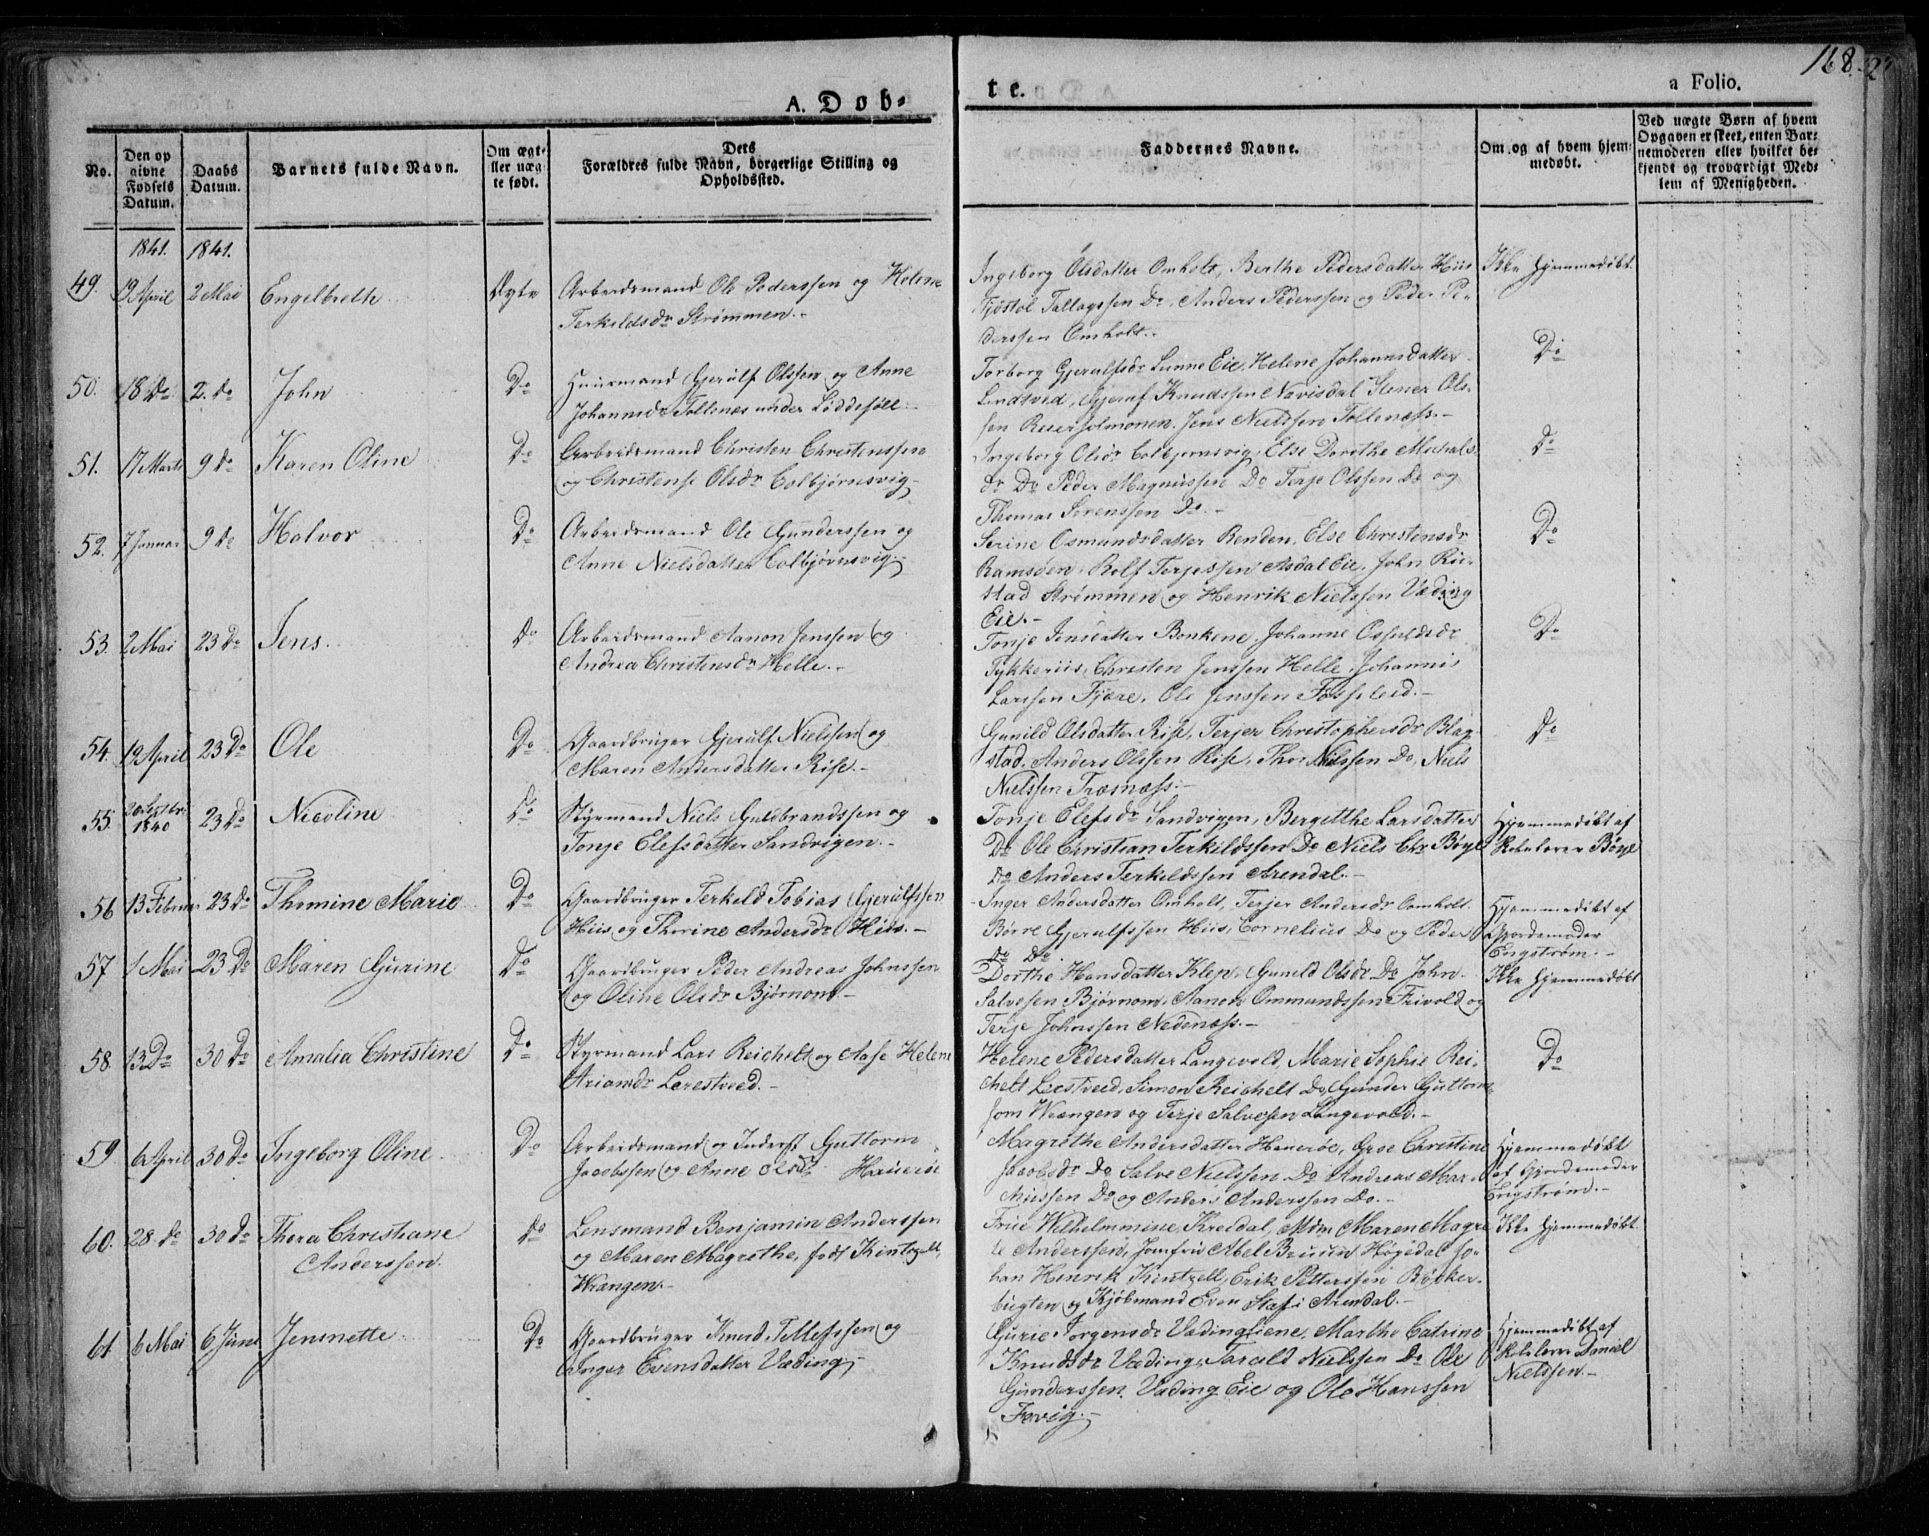 168
A. Døb-
te.
a Folio.
No.
Den op
givne
Fødsels
Datum.
Daabs
Datum.
Barnets fulde Navn.
Om ægte
eller uæg
te født.
Dets
Forældres fulde Navn, borgerlige Stilling og
Opholdssted.
Faddernes Navne.
Om og af hvem hjem-
medøbt.
Ved uægte Børn af hvem
Opgaven er skeet, enten Bar-
nemoderen eller hvilket be-
kjendt og troværdigt Med-
lem af Menigheden.
1841. 1841.
49. 19 April 2 Mai Engelbreth Ægte Arbeidsmand Ole Pederssen og Helene
Terkildsdr Strømmen.-
Ingeborg Olsdatter Omholt, Berthe Pedersdatter Hiis
Tjøstol Tallagssen Do, Anders Pederssen og Peder Pe-
derssen Omholt.-
Ikke hjemmedøbt.
50. 18 do 2. do John Do Huusmand Gjerulf Olssen og Anne
Johannsdr Tollenes under Løddesøll.-
Torborg Gjerulfsdr Lunne Eie, Helene Johannsdatter
Lindtved, Gjeruf Knudssen Navisdal Stener Ols-
sen Jens Nielssen Tollenæss.-
Do
51. 17 Marts 9 do Karen Oline Do Arbeidsmand Christen Christenssen
og Christense Olsdr Colbjørnsvig.-
Ingeborg Olsdr Colbjørnsvig, Else Dorothe Michals-
dr Do Peder Magnussen Do Terje Olssen Do og
Thomas Sørenssen Do.-
Do
52. 7 Januar 9 do Halvor Do Arbeidsmand Ole Gunderssen og
Anne Nielsdatter Colbjørnsvig.-
Serine Osmundsdatter Renden, Else Christensdr
Ramsøen, Rolf Terjessen Asdal Eie, John Ru-
stad Strømmen og Henrik Nielssen Væding
Eie.-
Do
53. 2 Mai 23 do Jens. Do Arbeidsmand Aanon Jenssen og
Andrea Christensdr Helle.-
Tonje Jensdatter Bonkene, Johanne Osfuldsdr
Tykkeriis, Christen Jenssen Helle, Johannis
Larssen Fjære, Ole Jenssen Fosseleid.-
Do
54. 19 April 23 do Ole Do Gaardbruger Gjerulf Nielssen og
Maren Andersdatter Rise.-
Gunild Olsdatter Rise, Terjer Christophersdr Blag-
stad, Anders Olssen Rise, Thor Nielssen Do, Niels
Nielssen Træsnæss.-
Do
55. 20 Septbr. 1840 23 do Nicoline Do Styrmand Niels Guldbrandssen og
Tonje Elefsdatter Sandvigen.-
Tonje Elefsdr Sandvigen, Bergitthe Larsdatter
Do Ole Christian Terkildssen Do Niels Chr. Bøye
Do Anders Terkeldssen Arendal.-
Hjemmedøbt af
Skolelærer Bøye
56. 13 Februar 23 do Thomine Marie Do Gaardbruger Terkeld Tobias Gjerulfssen
Hiis og Thorine Andersdr Hiis.-
Inger Andersdatter Omholt, Terjer Andersdr Oomholt.
Børre Gjerulfssen Hiis, Cornelius Do og Peder
Do Do.
Hjemmedøbt af
Gjordemoder
Engstrøm.-
57. 1 Mai 23 Do Maren Gurine Do Gaardbruger Peder Andreas Johnssen
og Oline Olsdr Bjørnom.-
Dorthe Hansdatter Klep, Gunild Olsdr Do John
Salvesen Bjørnom, Aanon Ommundssen Frivold og
Terje Johnssen Nedenæss.-
Ikke hjemmedøbt
58. 13 Do 30 Do Amalia Christine Do Styrmand Lars Reichelt og Aase Helene
Ariansdr Lerestveed.-
Helene Pedersdatter Langevold, Marie Sophie Rei-
chelt Lerstveed, Simon Reichelt Do, Gunder Guttorm-
som Wrængen og Terje Salvesen Langevold.-
Do
59. 6 April 30 Do Ingeborg Oline Do Arbeidsmand og Inderst Guttorm
Jacobssen og Anne Olsdr Haverøe
Magrethe Andersdatter Haverøe, Grse Christine
Jacobsdr Do Salve Nielssen Do Andreas Mar-
cussen Do og Anders Anderssen Do.-
Hjemmedøbt
af Gjordemoder
Engstrøm.-
60. 28 do 30 Do Thora Christiane
Anderssen.
Do Lensmand Benjamin Anderssen
og Maren Magrethe, født Kintzell,
Wrængen.-
Frue Wilhelmmine Kreidal, Mdm Maren Magre
te Anderssen, Jomfru Abel Bruun Høgedal, Jo-
han Henrik Kintzell, Erik Pettersson Bøcker-
bugten og Kjøbmand Even Staf i Arendal.-
Ikke hjemmedøbt
61 6 Mai 6 Juni Jensnette Do Gaardbruger Knud Tellefssen og
Inger Evensdatter Væding.-
Gurie Torgensdr Vædingliene, Marthe Catrine
Knudsdr Væding, Tarald Nielssen Do Ole
Gunderssen Væding Eie og Ole Hanssen
Færvig.-
Hjemmedøbt af
Skolelærer Daniel
Nielssen.-